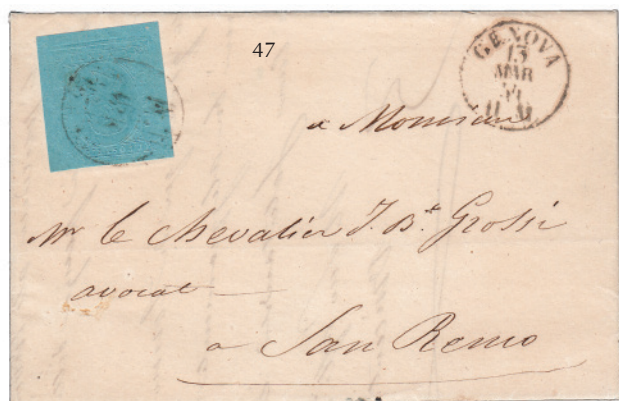 47
GENOVA
13
MAR
54
a Monsieur
Mr le Chevalier J. Bt. Grossi
avocat
a San Remo